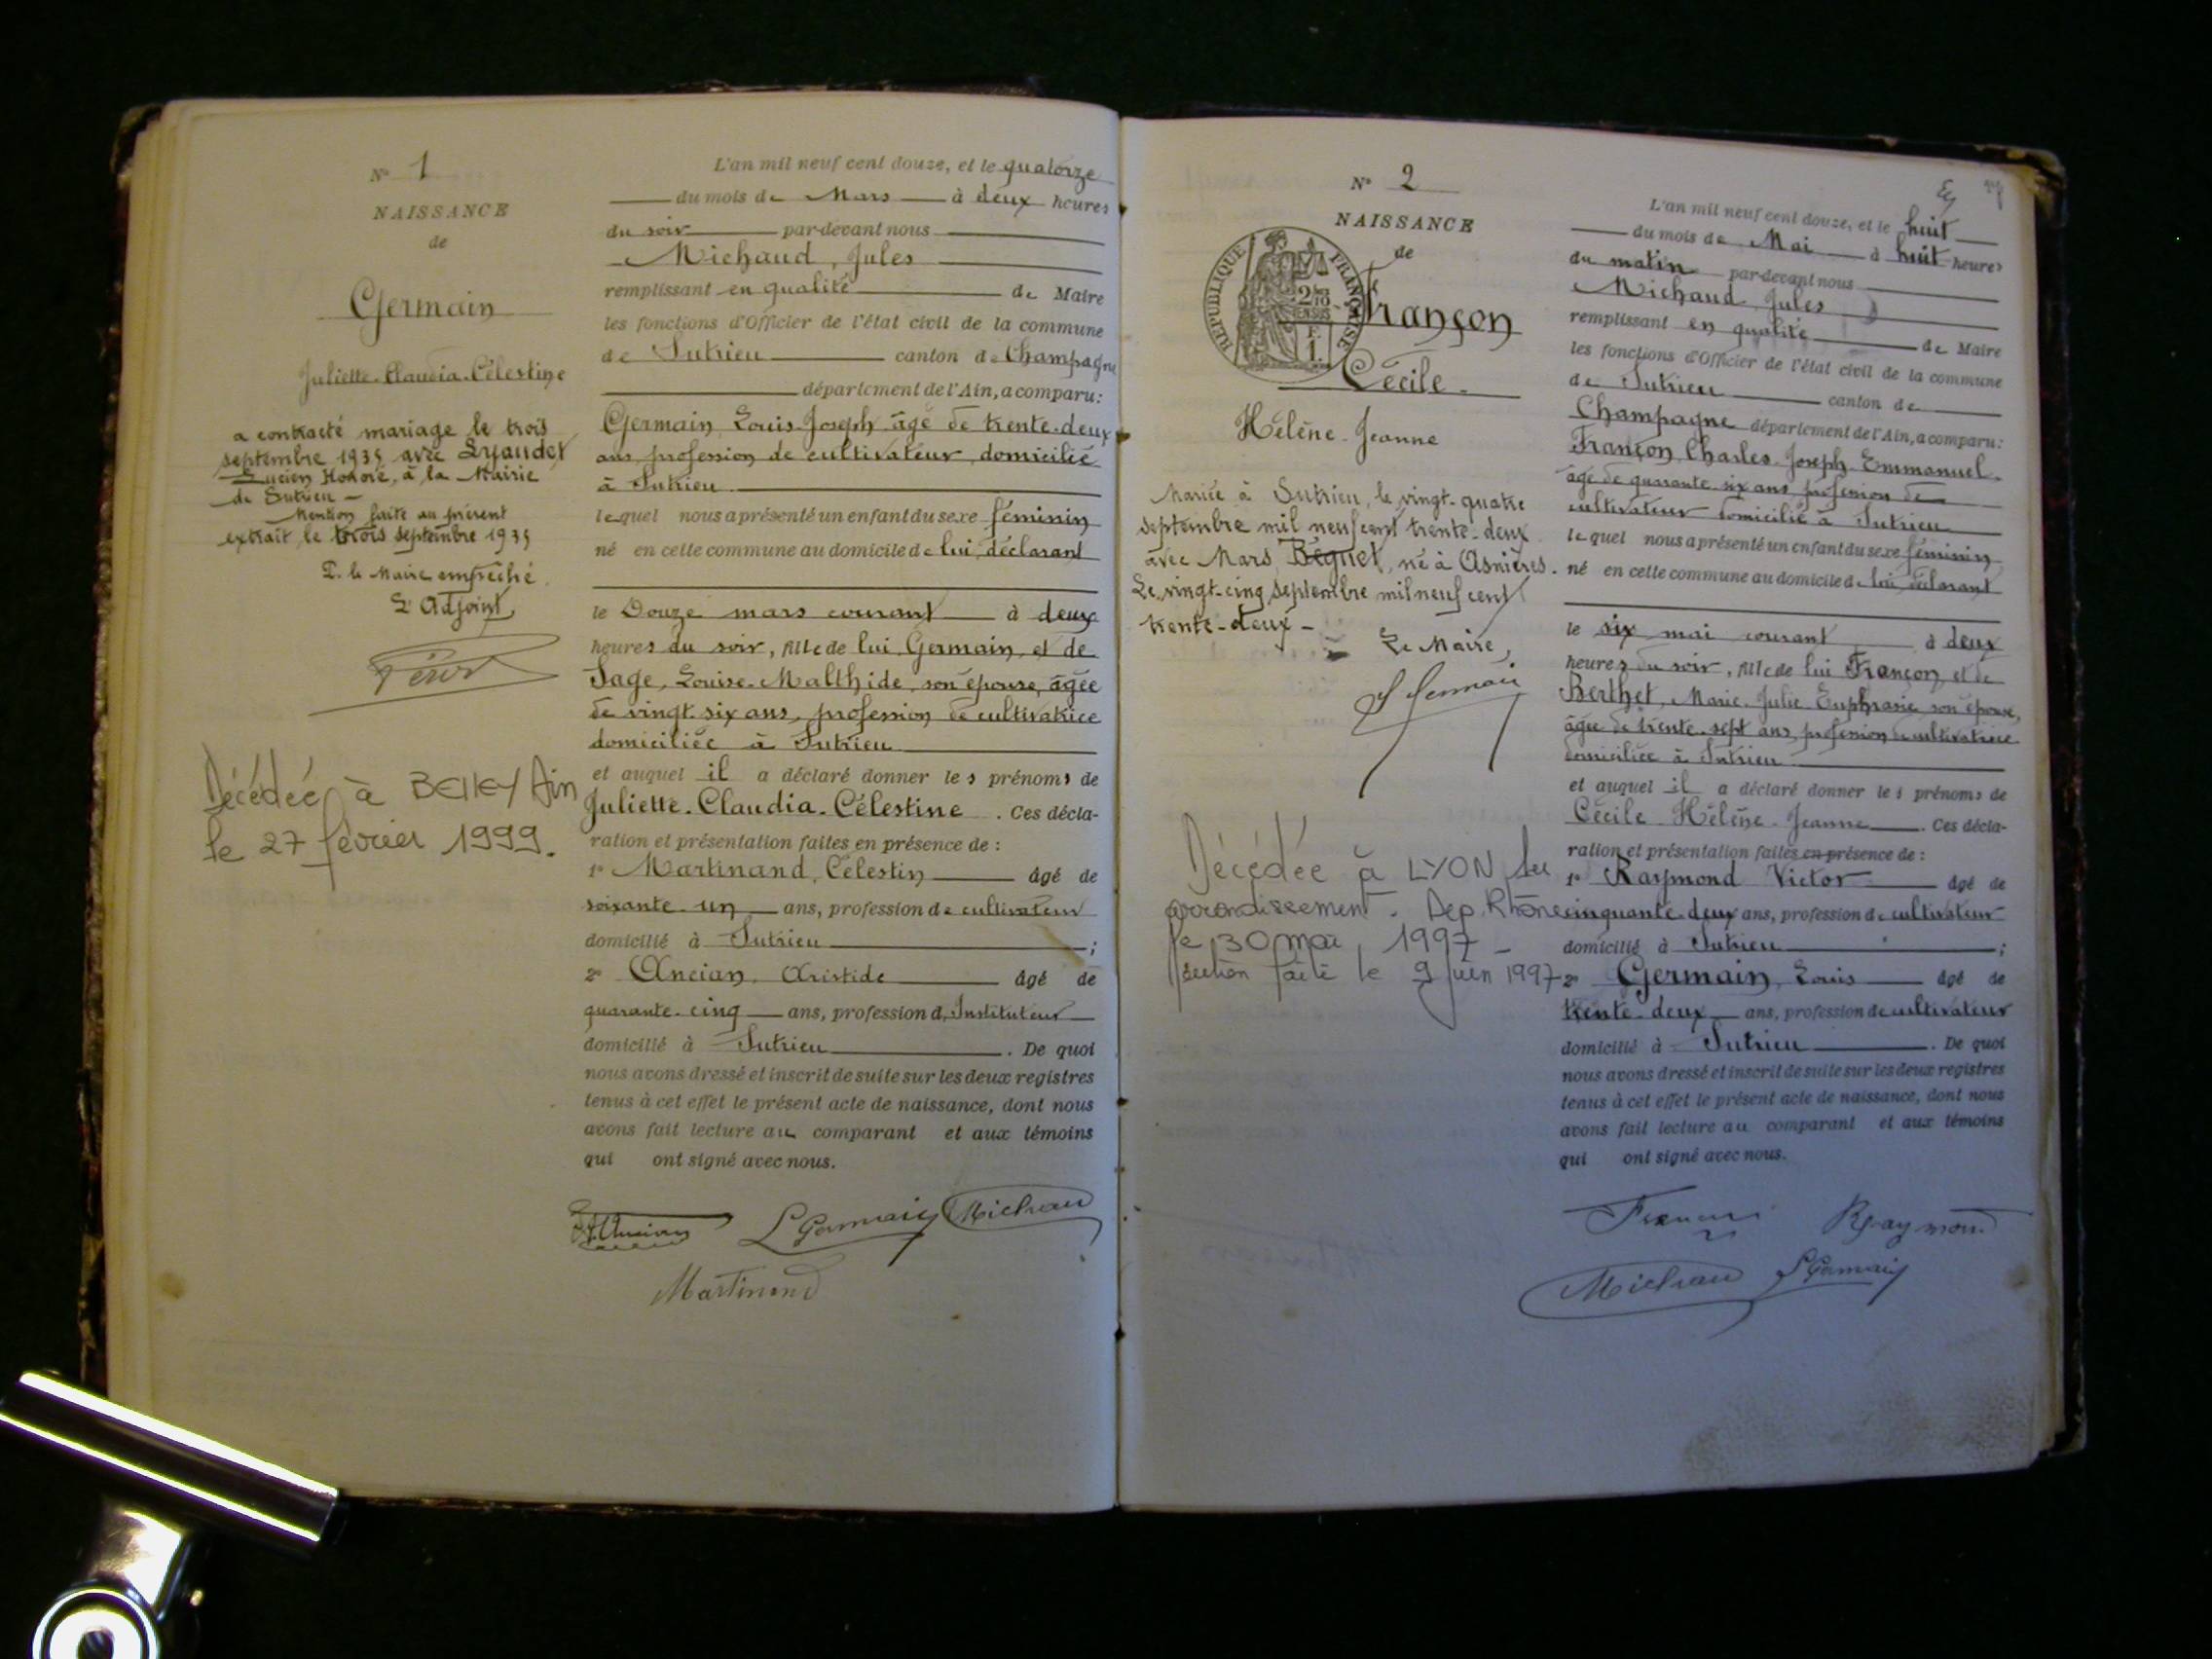 N° 1
NAISSANCE
de
Germain
Juliette-Claudia-Célestine
a contracté mariage le trois
septembre 1935 avec
Lucien Honoré, à la Mairie
de Sutrieu -
Mention faite au présent
extrait le trois septembre 1935
P. le Maire empêché.
L'Adjoint,
Décédée à BELLEY Ain
le 27 février 1999.
L'an mil neuf cent douze, et le quatorze
du mois de Mars à deux heures
du soir par-devant nous
Michaud, Jules
remplissant en qualité de Maire
les fonctions d'Officier de l'état civil de la commune
de Sutrieu canton de Champagne
département de l'Ain, a comparu:
Germain, Louis-Joseph âgé de trente-deux
ans, profession de cultivateur, domicilié
à Sutrieu
lequel nous a présenté un enfant du sexe féminin
né en cette commune au domicile de lui, déclarant
le Douze mars courant à deux
heures du soir, fille de lui, Germain, et de
Sage, Louise-Malthide, son épouse, âgée
de vingt-six ans, profession de cultivatrice
domiciliée à Sutrieu
et auquel il a déclaré donner les prénoms de
Juliette-Claudia-Célestine. Ces décla-
ration et présentation faites en présence de :
1° Martinand, Célestin âgé de
soixante-un ans, profession de cultivateur
domicilié à Sutrieu ;
2° Ancian, Aristide âgé de
quarante-cinq ans, profession d'Instituteur
domicilié à Sutrieu. De quoi
nous avons dressé et inscrit de suite sur les deux registres
tenus à cet effet le présent acte de naissance, dont nous
avons fait lecture au comparant et aux témoins
qui ont signé avec nous.
Ancian L Germain Michaud
Martinand
N° 2
NAISSANCE
de
RÉPUBLIQUE FRANÇAISE
Françon
Cécile-
Hélène-Jeanne
Mariée à Sutrieu, le vingt-quatre
septembre mil neuf cent trente-deux
avec Mars Béguet, né à Asnières.
Le vingt-cinq septembre mil neuf cent
trente-deux -
Le Maire,
L Germain
Décédée à LYON
arrondissement. Dep. Rhône
le 30 mai 1997 -
faite le 9 juin 1997
L'an mil neuf cent douze, et le huit
du mois de Mai à huit heures
du matin par-devant nous
Michaud, Jules
remplissant en qualité de Maire
les fonctions d'Officier de l'état civil de la commune
de Sutrieu canton de
Champagne département de l'Ain, a comparu:
Françon, Charles-Joseph-Emmanuel.
âgé de quarante-six ans, profession de
cultivateur domicilié à Sutrieu
lequel nous a présenté un enfant du sexe féminin,
né en cette commune au domicile de lui, déclarant
le six mai courant à deux
heures du soir, fille de lui Françon, et de
Berthet, Marie-Julie-Euphrasie son épouse,
âgée de trente-sept ans, profession de cultivatrice
domiciliée à Sutrieu
et auquel il a déclaré donner les prénoms de
Cécile-Hélène-Jeanne. Ces décla-
ration et présentation faites en présence de :
1° Raymond Victor âgé de
cinquante-deux ans, profession de cultivateur
domicilié à Sutrieu ;
2° Germain, Louis âgé de
trente-deux ans, profession de cultivateur
domicilié à Sutrieu. De quoi
nous avons dressé et inscrit de suite sur les deux registres
tenus à cet effet le présent acte de naissance, dont nous
avons fait lecture au comparant et aux témoins
qui ont signé avec nous.
Françon Raymond
Michaud L Germain